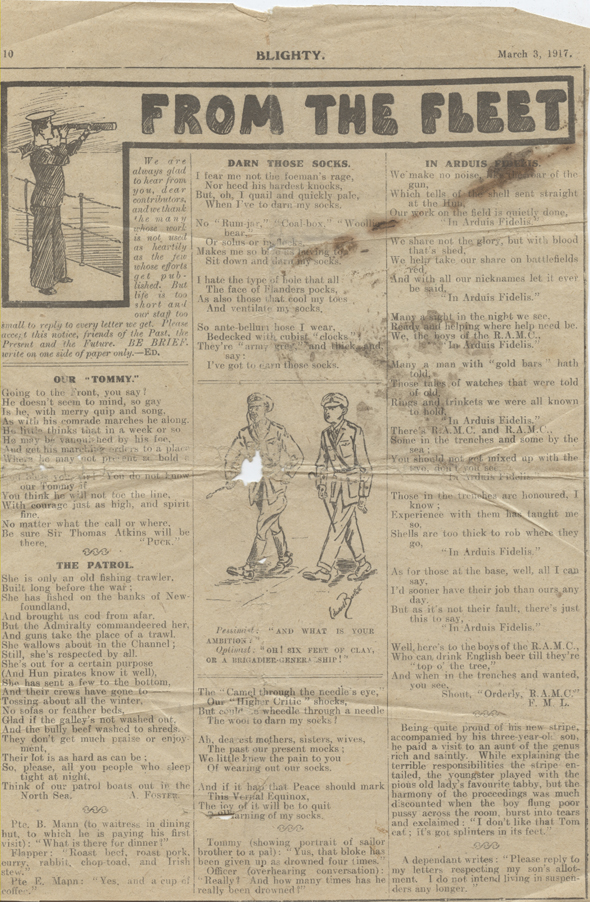 10
BLIGHTY.
March 3, 1917.
FROM THE FLEET
We are
always glad
to hear from
you, dear
contributors,
and we thank
the many
whose work
is not used
as heartily
as the few
whose efforts
get pub-
lished. But
life is too
short and
our staff too
small to reply to every letter we get. Please
accept this notice, friends of the Past, the
Present and the Future. BE BRIEF.
write on one side of paper only.—ED.
OUR "TOMMY."
Going to the Front, you say?
He doesn't seem to mind, so gay
Is he, with merry quip and song,
As with his comrade marches he along.
He little thinks that in a week or so
He may be vanquished by his foe,
And get his marching orders to a place
Where he may not present so bold
You do not know
our Tommy if
You think he will not toe the line,
With courage just as high, and spirit
fine.
No matter what the call or where,
Be sure Sir Thomas Atkins will be
there. "PUCK."
THE PATROL.
She is only an old fishing trawler,
Built long before the war;
She has fished on the banks of New-
foundland,
And brought us cod from afar.
But the Admiralty commandeered her,
And guns take the place of a trawl.
She wallows about in the Channel;
Still, she's respected by all.
She's out for a certain purpose
(And Hun pirates know it well),
She has sent a few to the bottom,
And their crews have gone to
Tossing about all the winter,
No sofas or feather beds,
Glad if the galley's not washed out,
And the bully beef washed to shreds.
They don't get much praise or enjoy
ment,
Their lot is as hard as can be;
So, please, all you people who sleep
tight at night,
Think of our patrol boats out in the
North Sea. A. FOSTER.
Pte. B. Mann (to waitress in dining
hut, to which he is paying his first
visit): "What is there for dinner?"
Flapper: "Roast beef, roast pork,
curry, rabbit, chop-toad, and Irish
stew."
Pte E. Mann: "Yes, and a cup of
coffee."
DARN THOSE SOCKS.
I fear me not the foeman's rage,
Nor heed his hardest knocks,
But, oh, I quail and quickly pale,
When I've to darn my socks.
No "Rum-jar," "Coal-box," "Woolly
bear,"
Or solus or in
Makes me so
Sit down and darn my socks.
I hate the type of hole that all
The face of Flanders pocks,
As also those that cool my toes
And ventilate my socks.
So ante-bellum hose I wear,
Bedecked with cubist "clocks."
They're "army grey," and thick and,
say:
I've got to earn those socks.
Pessimist: "AND WHAT IS YOUR
AMBITION?"
Optimist: "OH! SIX FEET OF CLAY,
OR A BRIGADIER-GENERALSHIP!"
The "Camel through the needle's eye,"
Our "Higher Critic" shocks,
But could a needle through a needle
The wool to darn my socks!
Ah, dearest mothers, sisters, wives,
The past our present mocks;
We little knew the pain to you
Of wearing out our socks.
And if it hap that Peace should mark
This Vernal Equinox,
The joy of it will be to quit
darning of my socks.
Tommy (showing portrait of sailor
brother to a pal): "Yus, that bloke has
been given up as drowned four times."
Officer (overhearing conversation):
"Really? And how many times has he
really been drowned?"
IN ARDUIS FIDELIS.
We make no noise, like the roar of the
gun,
Which tells of the shell sent straight
at the Hun,
Our work on the field is quietly done,
"In Arduis Fidelis."
We share not the glory, but with blood
that's shed,
We help take our share on battlefields
red,
And with all our nicknames let it ever
be said,
"In Arduis Fidelis."
Many a sight in the night we see,
Ready and helping where help need be.
We, the boys of the R.A.M.C.,
"In Arduis Fidelis."
Many a man with "gold bars" hath
told,
Those tales of watches that were told
of old,
Rings and trinkets we were all known
to hold,
"In Arduis Fidelis."
There's R.A.M.C. and R.A.M.C.,
Some in the trenches and some by the
sea;
You should not get mixed up with the
two, don't you see
"In Arduis Fidelis."
Those in the trenches are honoured, I
know;
Experience with them has taught me
so,
Shells are too thick to rob where they
go,
"In Arduis Fidelis."
As for those at the base, well, all I can
say,
I'd sooner have their job than ours any
day.
But as it's not their fault, there's just
this to say,
"In Arduis Fidelis."
Well, here's to the boys of the R.A.M.C.,
Who can drink English beer till they're
"top o' the tree,"
And when in the trenches and wanted,
you see,
Shout, "Orderly, R.A.M.C."
F. M. L.
Being quite proud of his new stripe,
accompanied by his three-year-old son,
he paid a visit to an aunt of the genus
rich and saintly. While explaining the
terrible responsibilities the stripe en-
tailed, the youngster played with the
pious old lady's favourite tabby, but the
harmony of the proceedings was much
discounted when the boy flung poor
pussy across the room, burst into tears
and exclaimed: "I don't like that Tom
cat; it's got splinters in its feet."
A dependant writes: "Please reply to
my letters respecting my son's allot-
ment. I do not intend living in suspen-
ders any longer."